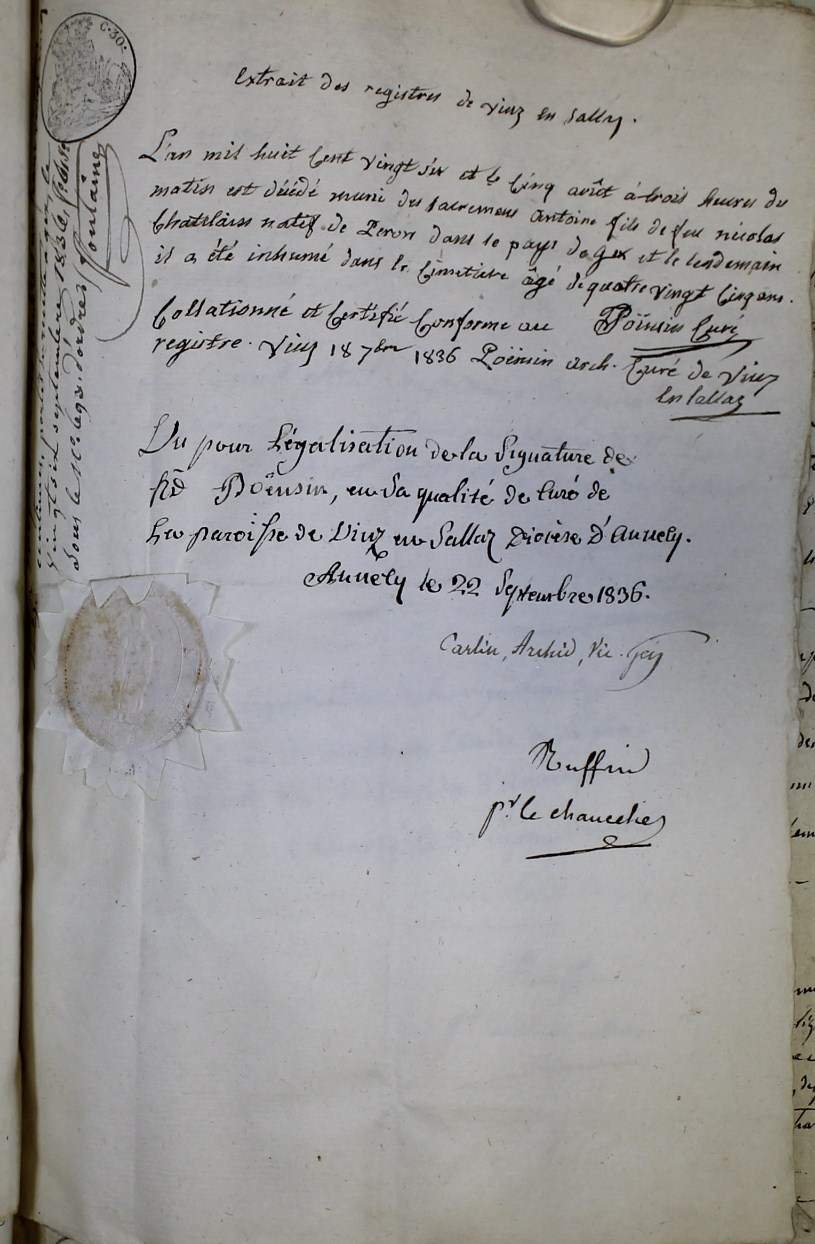 C. 30.
Extrait des registres de viuz en sallaz.
L'an mil huit cent vingt six et le cinq août à trois heures du
matin est décédé muni des sacremens antoine fils de feu nicolas
Chatelain natif de Peron dans le pays de gex et le lendemain
il a été inhumé dans le Cimetiere âgé de quatre vingt cinq ans.
Poënsin Curé
Collationné et Certifié Conforme au
registre. Viuz 18 7bre 1836 Poënsin arch. Curé de Viuz
en sallaz
Vu pour Légalisation de la Signature de
Rd Poënsin, en sa qualité de Curé de
La paroisse de Viuz en Sallaz Diocèse d'Annecy.
Annecy le 22 Septembre 1836.
Carlin, Archid, Vic. Gen
Ruffin
pr le chancelier
vingt six septembre 1836
sous le No